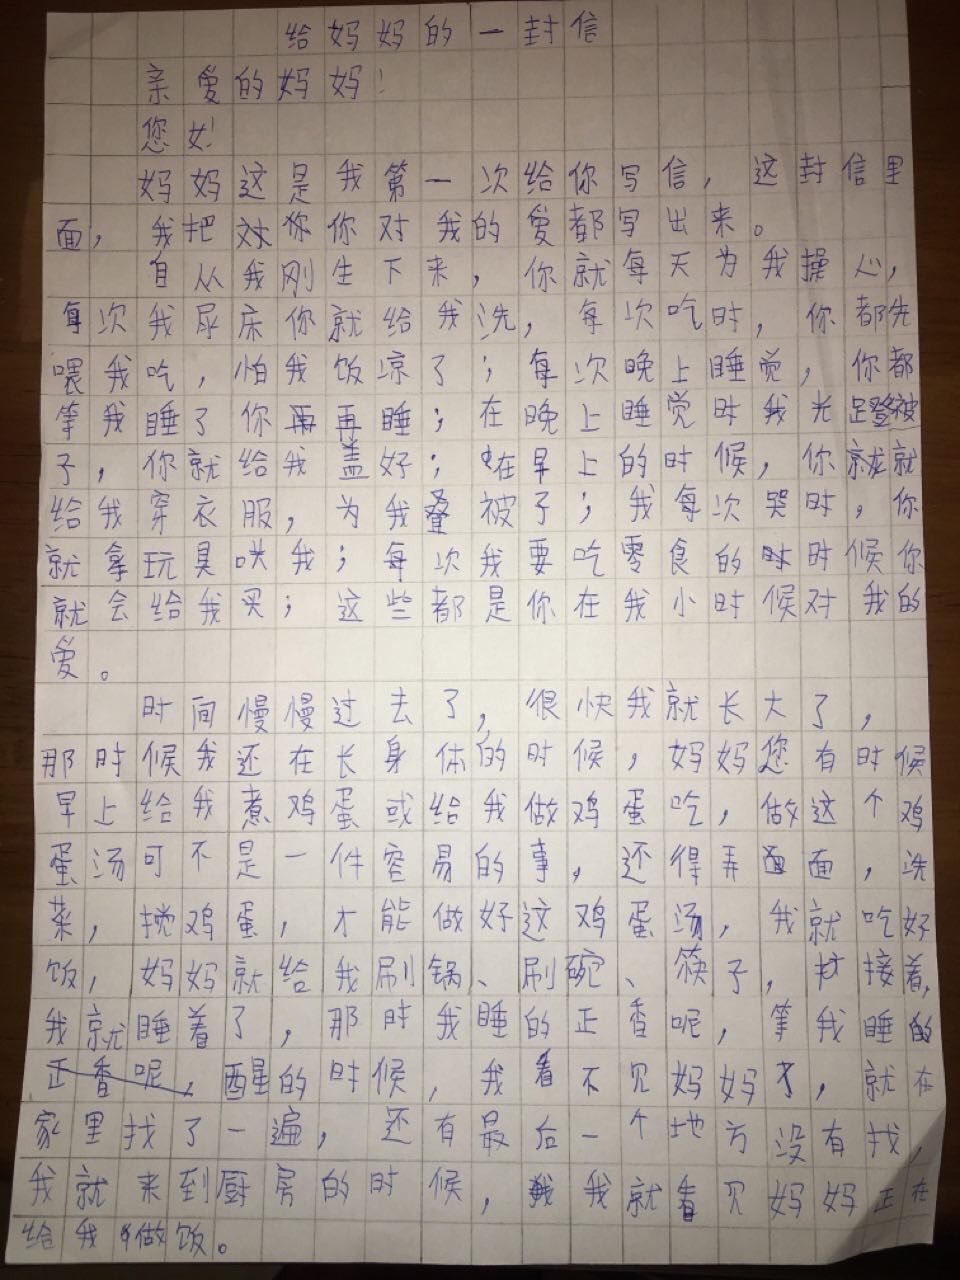 给妈妈的一封信
亲爱的妈妈！
您好！
妈妈这是我第一次给你写信，这封信里
面，我把你对我的爱都写出来。
自从我刚生下来，你就每天为我操心，
每次我尿床你就给我洗，每次吃时，你都先
喂我吃，怕我饭凉了；每次晚上睡觉，你都
等我睡了你再睡；在晚上睡觉时我光蹬被
子，你就给我盖好；在早上的时候，你就
给我穿衣服，为我叠被子；我每次哭时，你
就拿玩具哄我；每次我要吃零食的时候你
就会给我买；这些都是你在我小时候对我的
爱。
时间慢慢过去了，很快我就长大了，
那时候我还在长身体的时候，妈妈您有时候
早上给我煮鸡蛋或给我做鸡蛋吃，做这个鸡
蛋汤可不是一件容易的事，还得弄面，洗
菜，搅鸡蛋，才能做好这鸡蛋汤，我就吃好
饭，妈妈就给我刷锅、刷碗、筷子，接着，
我就睡着了，那时我睡的正香呢，等我睡的
正香呢，醒的时候，我看不见妈妈了，就在
家里找了一遍，还有最后一个地方没有找，
我就来到厨房的时候，我就看见妈妈正在
给我做饭。